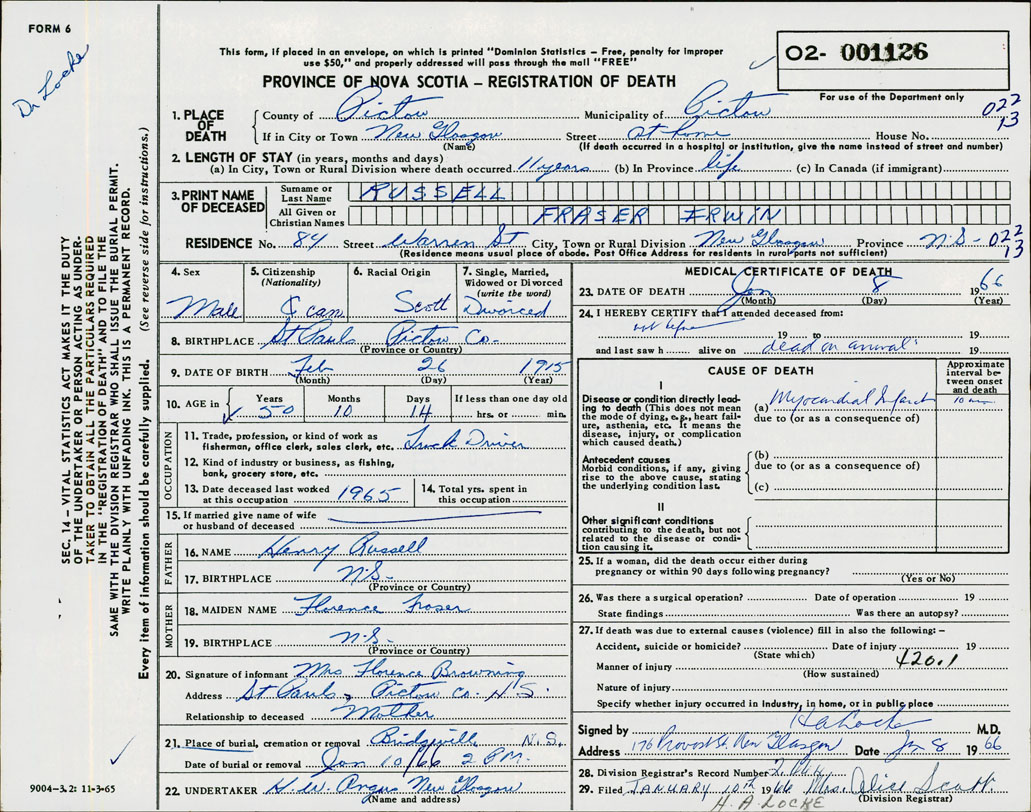 FORM 6
Dr Locke
This form, if placed in an envelope, on which is printed "Dominion Statistics – Free, penalty for improper
use $50," and properly addressed will pass through the mail "FREE"
PROVINCE OF NOVA SCOTIA – REGISTRATION OF DEATH
02- 001126
For use of the Department only
022
13
1. PLACE OF DEATH
County of Pictou Municipality of Pictou
If in City or Town New Glasgow Street at home House No.
(Name) (If death occurred in a hospital or institution, give the name instead of street and number)
2. LENGTH OF STAY (in years, months and days)
(a) In City, Town or Rural Division where death occurred 11 years (b) In Province life (c) In Canada (if immigrant)
3. PRINT NAME OF DECEASED
Surname or Last Name RUSSELL
All Given or Christian Names FRASER ERWIN
RESIDENCE No. 84 Street Warren St City, Town or Rural Division New Glasgow Province N.S- 022
13
(Residence means usual place of abode. Post Office Address for residents in rural parts not sufficient)
4. Sex
Male
5. Citizenship
(Nationality)
can
6. Racial Origin
Scott
7. Single, Married,
Widowed or Divorced
(write the word)
Divorced
8. BIRTHPLACE St Pauls Pictou Co-
(Province or Country)
9. DATE OF BIRTH Feb 26 1915
(Month) (Day) (Year)
10. AGE in
Years Months Days If less than one day old
50 10 14 hrs. or min.
OCCUPATION
11. Trade, profession, or kind of work as
fisherman, office clerk, sales clerk, etc. Truck Driver
12. Kind of industry or business, as fishing,
bank, grocery store, etc.
13. Date deceased last worked
at this occupation 1965
14. Total yrs. spent in
this occupation
15. If married give name of wife
or husband of deceased
FATHER
16. NAME Henry Russell
17. BIRTHPLACE N.S-
(Province or Country)
MOTHER
18. MAIDEN NAME Florence Fraser
19. BIRTHPLACE N.S-
(Province or Country)
20. Signature of informant Mrs Florence Browning
Address St Pauls, Pictou Co- N.S.
Relationship to deceased Mother
21. Place of burial, cremation or removal Bridgeville N.S.
Date of burial or removal Jan 10/66 2 PM.
22. UNDERTAKER H.W. Angus New Glasgow
(Name and address)
MEDICAL CERTIFICATE OF DEATH
23. DATE OF DEATH Jan 8 1966
(Month) (Day) (Year)
24. I HEREBY CERTIFY that I attended deceased from:
not before
19 to 19
and last saw h alive on dead on arrival 19
CAUSE OF DEATH
Approximate
interval be-
tween onset
and death
I
Disease or condition directly lead-
ing to death (This does not mean
the mode of dying, e.g., heart fail-
ure, asthenia, etc. It means the
disease, injury, or complication
which caused death.)
(a) Myocardial Infarct 10 min
due to (or as a consequence of)
Antecedent causes
Morbid conditions, if any, giving
rise to the above cause, stating
the underlying condition last.
(b)
due to (or as a consequence of)
(c)
II
Other significant conditions
contributing to the death, but not
related to the disease or condi-
tion causing it.
25. If a woman, did the death occur either during
pregnancy or within 90 days following pregnancy?
(Yes or No)
26. Was there a surgical operation? Date of operation 19
State findings Was there an autopsy?
27. If death was due to external causes (violence) fill in also the following: –
Accident, suicide or homicide? Date of injury 19
(State which)
420.1
Manner of injury
(How sustained)
Nature of injury
Specify whether injury occurred in industry, in home, or in public place
Signed by H A Locke M.D.
Address 176 Provost St. New Glasgow Date Jan 8 1966
28. Division Registrar's Record Number
29. Filed JANUARY 10th 1966 Mrs. Alice Scott
(Division Registrar)
H. A. LOCKE
SEC. 14 – VITAL STATISTICS ACT MAKES IT THE DUTY
OF THE UNDERTAKER OR PERSON ACTING AS UNDER-
TAKER TO OBTAIN ALL THE PARTICULARS REQUIRED
IN THE "REGISTRATION OF DEATH" AND TO FILE THE
SAME WITH THE DIVISION REGISTRAR WHO SHALL ISSUE THE BURIAL PERMIT.
WRITE PLAINLY WITH UNFADING INK. THIS IS A PERMANENT RECORD.
Every item of information should be carefully supplied. (See reverse side for instructions.)
9004-3.2: 11-3-65